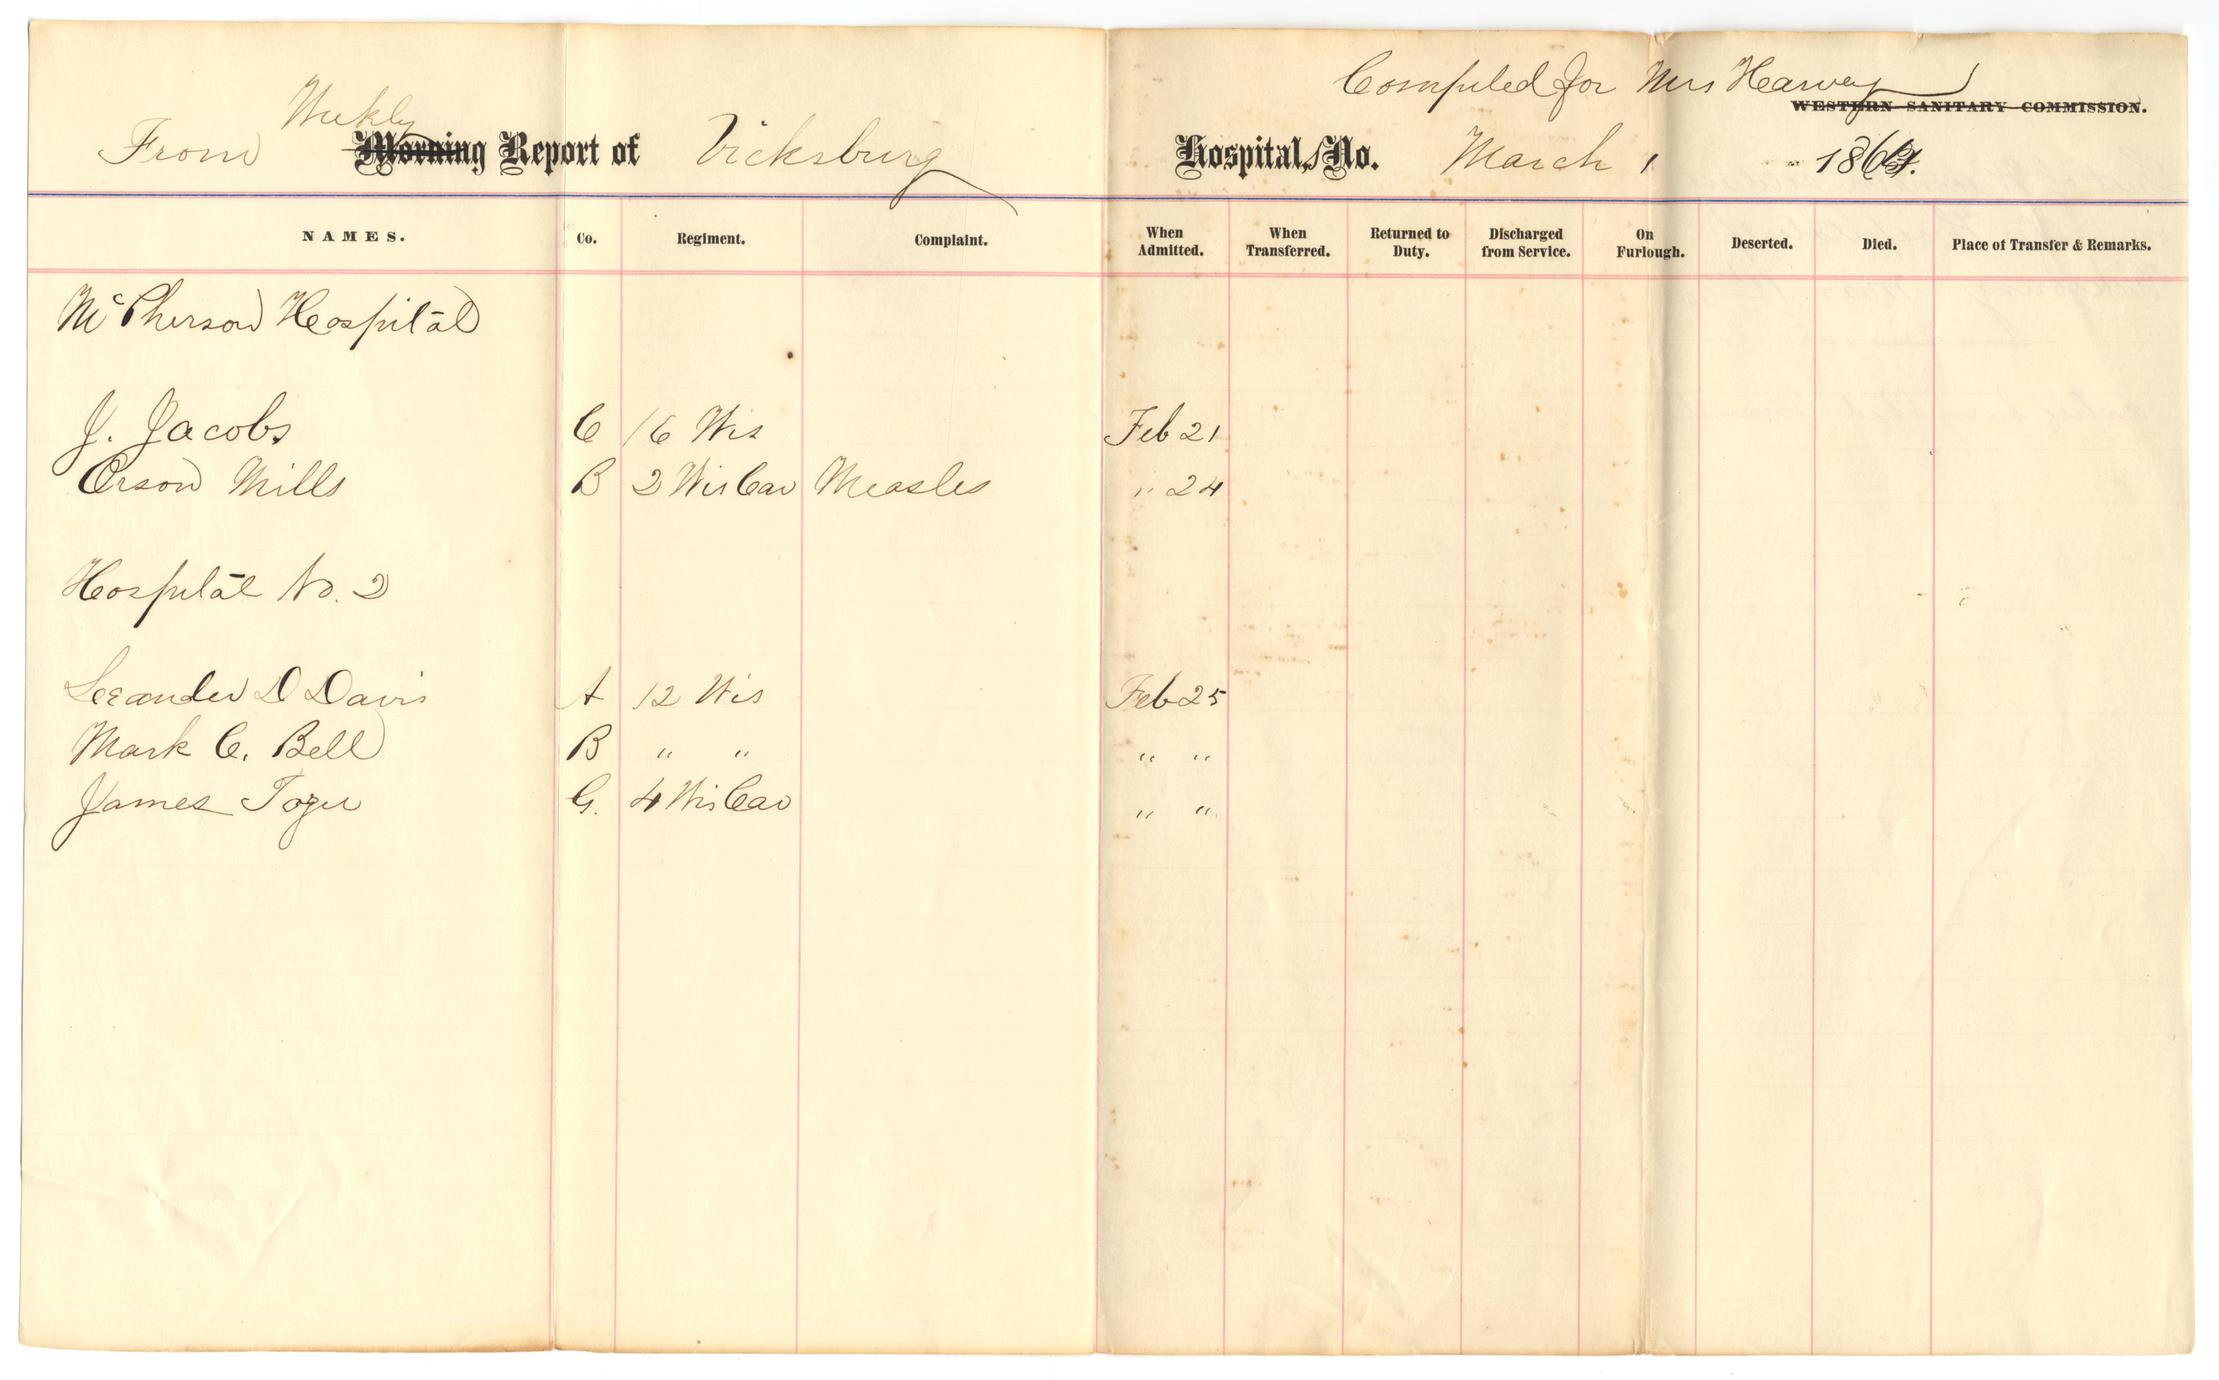 Compiled for Mrs Harvey
WESTERN SANITARY COMMISSION.
Weekly
From Morning Report of Vicksburg Hospitals, No. March 1 1864.
NAMES. Co. Regiment. Complaint. When Admitted. When Transferred. Returned to Duty. Discharged from Service. On Furlough. Deserted. Died. Place of Transfer & Remarks.
McPherson Hospital
J. Jacobs C 16 Wis Feb 21
Orson Mills B 2 Wis Cav Measles " 24
Hospital No. 2
Leeander D Davis A 12 Wis Feb 25
Mark C. Bell B " " " "
James Tozer G. 4 Wis Cav " "